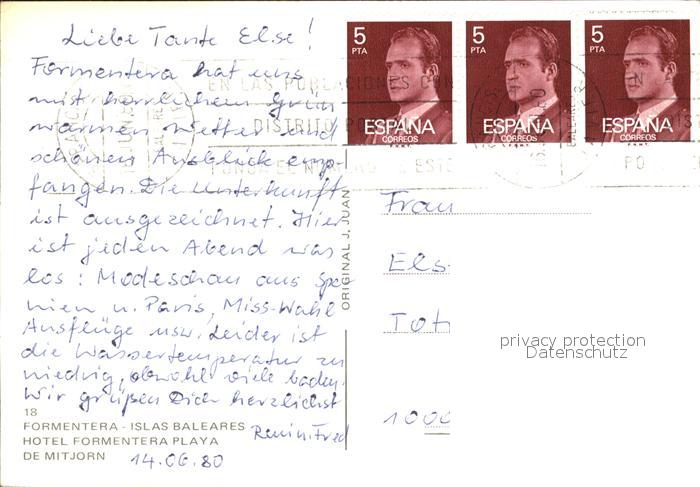 Liebe Tante Else!
Formentera hat uns
mit herrlichem Grün
warmen Wetter und
schönem Ausblick emp-
fangen. Die Unterkunft
ist ausgezeichnet. Hier
ist jeden Abend was
los: Modeschau aus Spa-
nien u. Paris, Miss-Wahl
Ausflüge usw. Leider ist
die Wassertemperatur zu
niedrig, obwohl viele baden.
Wir grüßen Dich herzlichst
18
FORMENTERA - ISLAS BALEARES
HOTEL FORMENTERA PLAYA
DE MITJORN
14.06.80
ORIGINAL J. JUAN
5
PTA
ESPAÑA
CORREOS
F.N.M.T.
5
PTA
ESPAÑA
CORREOS
F.N.M.T.
5
PTA
ESPAÑA
CORREOS
F.N.M.T.
EN LAS POBLACIONES CON
DISTRITO PO
PONGA EL N
ESTE
Frau
Els
Tot
1000
privacy protection
Datenschutz